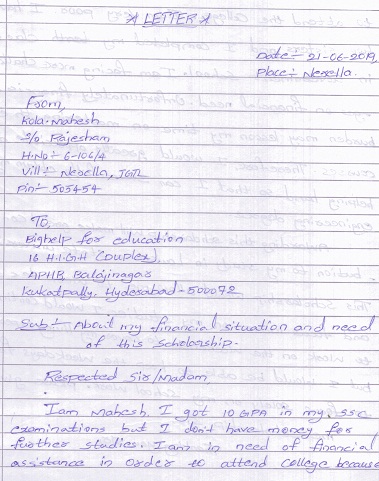 * LETTER *
Date:- 21-06-2019
Place:- Nerella.
From,
Kola. Mahesh
S/o Rajesham
H.No:- 6-106/4
Vill:- Nerella, JGTL
Pin:- 505454
To,
Bighelp for education
16 H.I.G.H (Duplex),
APHB Balajinagar
Kukatpally, Hyderabad-500072
Sub:- About my financial situation and need
of this Scholarship.
Respected Sir/Madam
I am Mahesh. I got 10 GPA in my. SSC
examinations but I don't have money for
further studies. I am in need of financial
assistance in order to attend college because